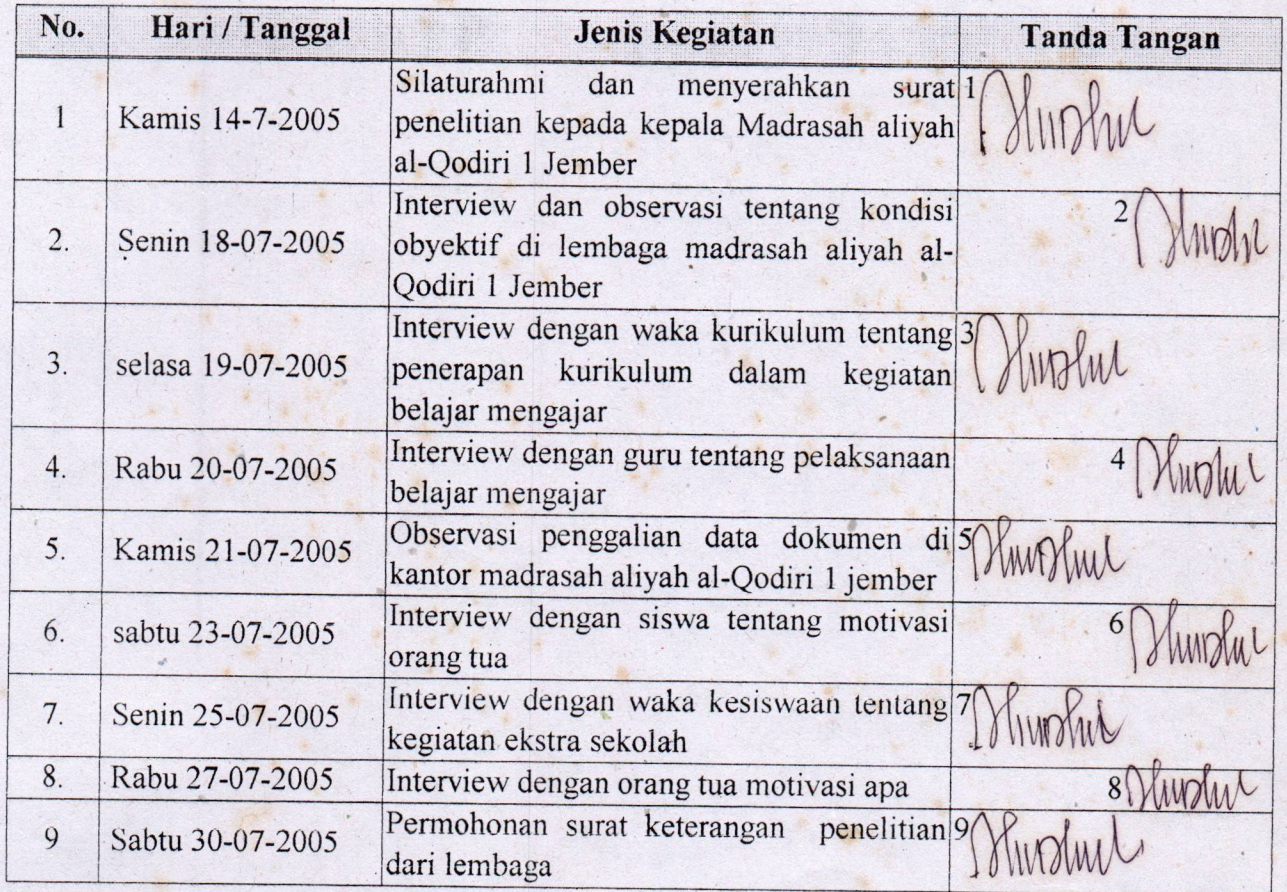 No. Hari / Tanggal Jenis Kegiatan Tanda Tangan
Silaturahmi dan menyerahkan surat 1
1 Kamis 14-7-2005 penelitian kepada kepala Madrasah aliyah
al-Qodiri 1 Jember
Interview dan observasi tentang kondisi 2
2. Senin 18-07-2005 obyektif di lembaga madrasah aliyah al-
Qodiri 1 Jember
Interview dengan waka kurikulum tentang 3
3. selasa 19-07-2005 penerapan kurikulum dalam kegiatan
belajar mengajar
4. Rabu 20-07-2005 Interview dengan guru tentang pelaksanaan 4
belajar mengajar
5. Kamis 21-07-2005 Observasi penggalian data dokumen di 5
kantor madrasah aliyah al-Qodiri 1 jember
6. sabtu 23-07-2005 Interview dengan siswa tentang motivasi 6
orang tua
7. Senin 25-07-2005 Interview dengan waka kesiswaan tentang 7
kegiatan ekstra sekolah
8. Rabu 27-07-2005 Interview dengan orang tua motivasi apa 8
9 Sabtu 30-07-2005 Permohonan surat keterangan penelitian 9
dari lembaga